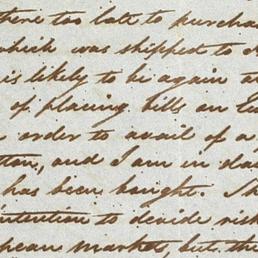 there too late to purcha
which was shipped to
is likely to be again
of placing bills on Eu
order to avail of a
tton, and I am in da
has been bought. Sh
intention to decide
pean market, but the